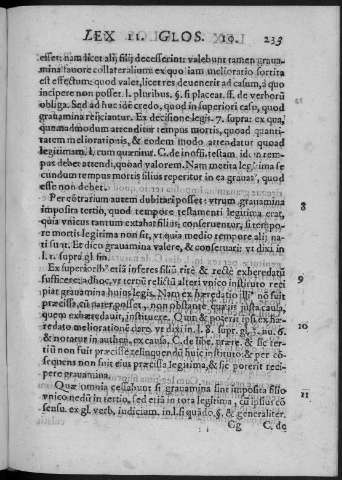 LEX II. GLOS. 10. 233
esset: nam licet alij filij decesserint: valebunt tamen graua-
mina fauore collateralium ex quo iam melioratio sortita
est effectum: quod valet, licet res deuenerit ad casum, à quo
incipere non posset. l. pluribus. §. si placeat. ff. de verborũ
obliga. Sed ad huc idẽ credo, quod in superiori casu, quod
grauamina reijciantur. Ex decisione legis. 7. supra: ex qua,
quemadmodum attenditur tempus mortis, quoad quanti-
tatem meliorationis, & eodem modo attendatur quoad
legitimam, l. cum quæritur. C. de in offi. testam. id. in tem-
pus debet attendi, quoad valorem. Nam merita legitima se
cundum tempus mortis filius reperitur in ea grauat⁹, quod
esse non debet.
Per cõtrarium autem dubitari posset: vtrum grauamina 8
imposita tertio, quod tempore testamenti legitima erat,
quia vnicus tantum extabat filius, conseruentur, si tempo-
re mortis legitima non sit, vt quia medio tempore alij na-
ti sunt. Et dico grauamina valere, & conseruari: vt dixi in
l. 1. supra gl. fin.
Ex superiorib⁹ etiã inferes filiũ ritè & rectè exheredatũ 9
sufficere: ad hoc, vt tertiũ relictũ alteri vnico instituto reci
piat grauamina huius legis. Nam ex hæredatio illi⁹ nõ fuit
præcissa, cũ pater posset, non obstante quauis iusta causa,
quem exhæredauit, instituere. Quin & poterit ipsi ex hæ-
redato meliorationẽ dare. vt dixi in. l. 8. supr. gl. 3. nu. 6. 10
& notatur in authen. ex causa, C. de libe. præte. & sic ter-
tiũ non fuit præcissè relinquendũ huic instituto: & per cõ-
sequens non fuit eius præcissa legitima, & sic poterit reci-
pere grauamina.
Quæ omnia cessabunt si grauamina sint imposita filio 11
vnico nedũ in tertio, sed etiã in tota legitima, cũ ipsius cõ
sensu. ex gl. verb. iudicium. in. l. si quãdo. §. & generaliter.
Gg C. de